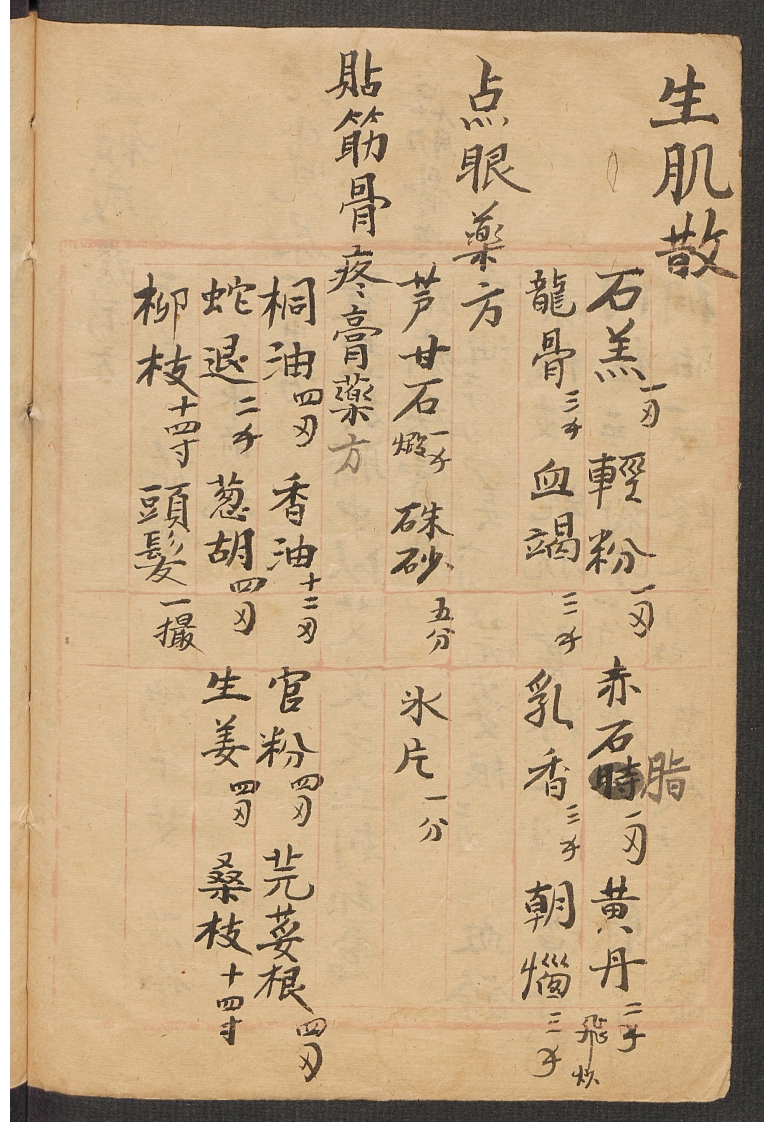 生肌散
石羔一刄 輕粉一刄 赤石脂一刄 黄丹二子飛炒
龍骨三子 血竭三子 乳香三子 朝惱三子
点眼薬方
芦甘石煅一子 硃砂五分 氷片一分
貼筋骨疼膏薬方
桐油四刄 香油十二刄 官粉四刄 芫荽根四刄
蛇退二子 葱胡四刄 生姜四刄 桑枝十四寸
柳枝十四寸 頭髮一撮